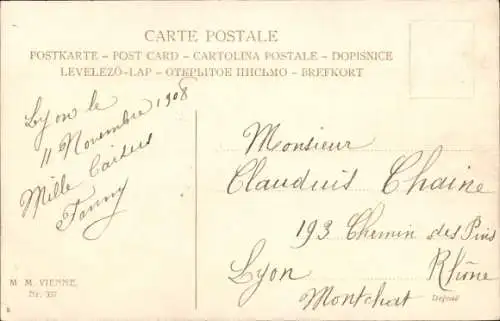 CARTE POSTALE
POSTKARTE – POST CARD – CARTOLINA POSTALE – DOPISNICE
LEVELEZŐ-LAP – ОТКРЫТОЕ ПИСЬМО – BREFKORT
Lyon le
11 Novembre 1908
Mille baisers
Fanny
Monsieur
Claudius Chaine
193 Chemin des Pins
Lyon Rhône
Montchat
M. M. VIENNE.
Nr. 337